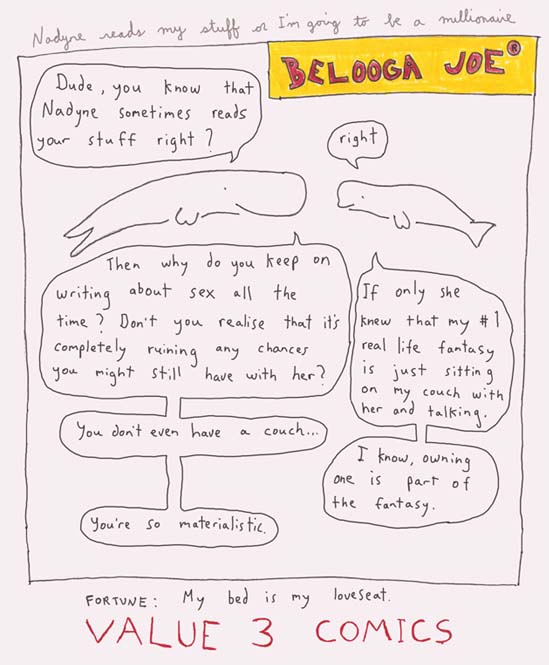 Nadyne reads my stuff or I'm going to be a millionaire
BELOOGA JOE®
Dude, you know that
Nadyne sometimes reads
your stuff right?
right
Then why do you keep on
writing about sex all the
time? Don't you realise that it's
completely ruining any chances
you might still have with her?
If only she
knew that my #1
real life fantasy
is just sitting
on my couch with
her and talking.
You don't even have a couch...
I know, owning
one is part of
the fantasy.
You're so materialistic.
FORTUNE: My bed is my loveseat.
VALUE 3 COMICS